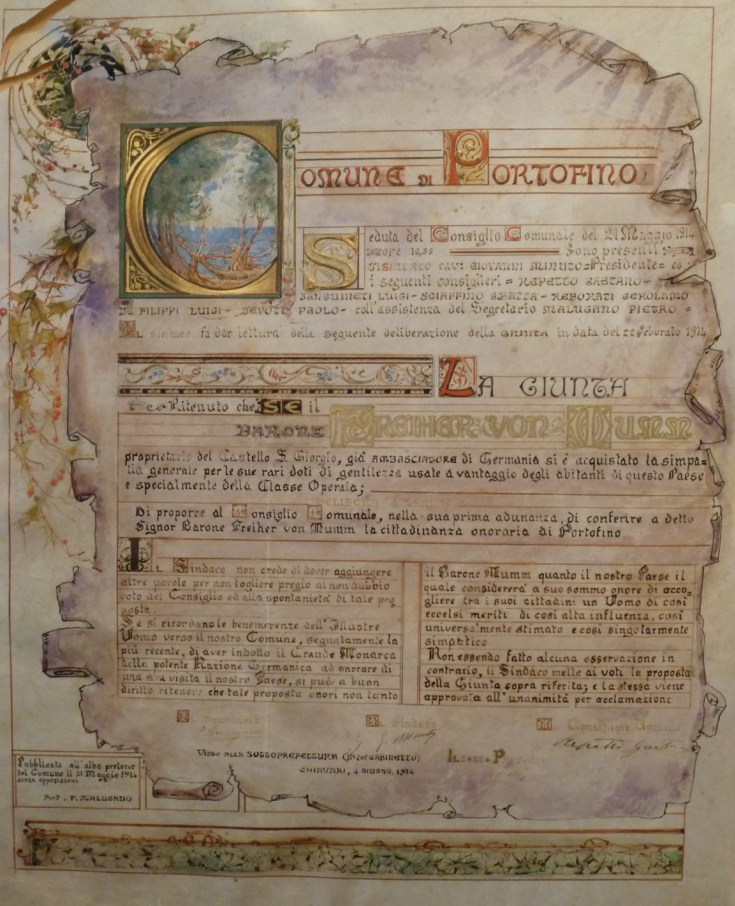 COMUNE DI PORTOFINO
Seduta del Consiglio Comunale del 21 Maggio 1914
ore 16,30 Sono presenti
SINDACO CAV: GIOVANNI MINUTO = Presidente = ed
i seguenti consiglieri = REPETTO GAETANO -
SANGUINETI LUIGI - SCIAFFINO - REBORATI GEROLAMO
DE FILIPPI LUIGI - DEVOTO PAOLO - coll'assistenza del Segretario MALUGANO PIETRO
IL SINDACO fa dar lettura della seguente deliberazione della GIUNTA in data del 22 Febbraio 1914
LA GIUNTA
Ritenuto che SE il
BARONE FREIHER VON MUMM
proprietario del Castello S. Giorgio, già AMBASCIATORE di Germania si è acquistato la simpa=
tia generale per le sue rari doti di gentilezza usate a vantaggio degli abitanti di questo Paese
e specialmente della Classe Operaia;
Di proporre al Consiglio Comunale, nella sua prima adunanza, di conferire a detto
Signor Barone Freiher von Mumm la cittadinanza onoraria di Portofino
IL Sindaco non crede di dover aggiungere
altre parole per non togliere pregio al non dubbio
voto del Consiglio ed alla spontanietà di tale pro
posta.
Se si ricordano le benemerenze dell'Illustre
Uomo verso il nostro Comune, segnalamente la
più recente, di aver indotto il Grande Monarca
della potente Nazione Germanica ad onorare di
una sua visita il nostro Paese, si può a buon
diritto ritenere che tale proposta onori non tanto
il Barone Mumm quanto il nostro Paese il
quale considererà a suo sommo onore di acco=
gliere tra i suoi cittadini un Uomo di così
eccelsi meriti di così alta influenza, così
universalmente stimato e così singolarmente
simpatico
Non essendo fatto alcuna osservazione in
contrario, il Sindaco mette ai voti la proposta
della Giunta sopra riferita; e la stessa viene
approvata all'unanimità per acclamazione
IL Sindaco
IL Consigliere Anziano
Repetto Gaetano
VISTO ALLA SOTTOPREFETTURA
CHIAVARI, 4 GIUGNO, 1914
Pubblicata all'albo pretorio
del Comune il 31 Maggio 1914
senza opposizioni
P. MALUGANO